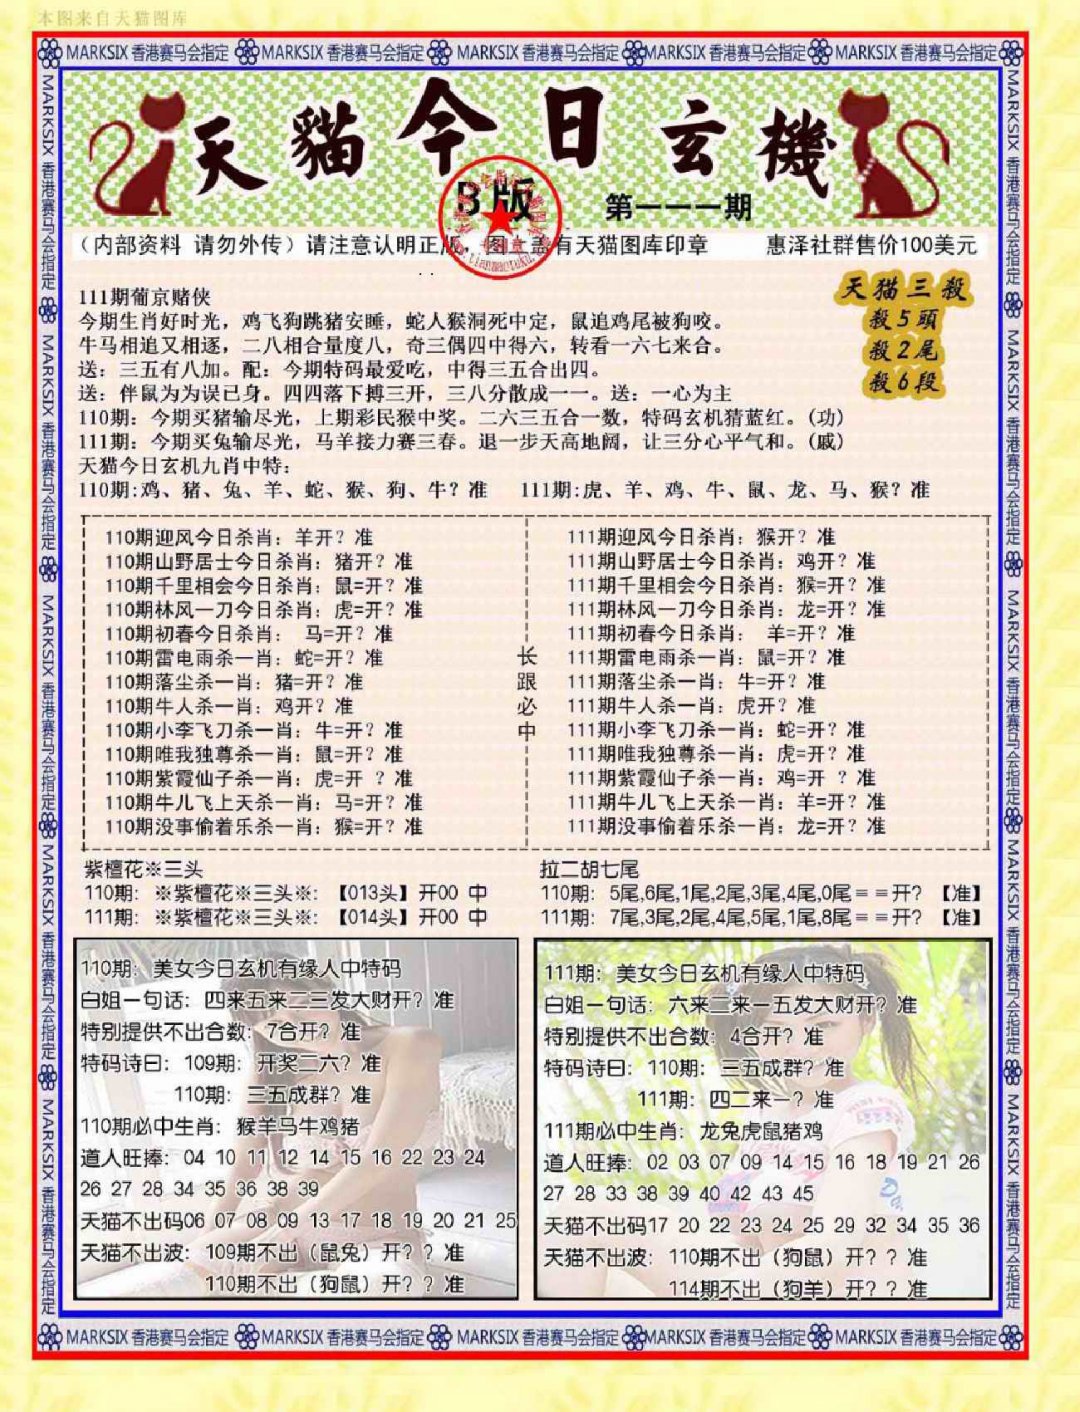 本图来自天猫图库
MARKSIX 香港赛马会指定 MARKSIX 香港赛马会指定 MARKSIX 香港赛马会指定 MARKSIX 香港赛马会指定 MARKSIX 香港赛马会指定
天貓今日玄機
B版
第一一一期
（内部资料 请勿外传）请注意认明正版，图上盖有天猫图库印章 惠泽社群售价100美元
天猫三殺
殺5頭
殺2尾
殺6段
111期葡京赌侠
今期生肖好时光，鸡飞狗跳猪安睡，蛇人猴洞死中定，鼠追鸡尾被狗咬。
牛马相追又相逐，二八相合量度八，奇三偶四中得六，转看一六七来合。
送：三五有八加。配：今期特码最爱吃，中得三五合出四。
送：伴鼠为为误已身。四四落下搏三开，三八分散成一一。送：一心为主
110期：今期买猪输尽光，上期彩民猴中奖。二六三五合一数，特码玄机猜蓝红。(功)
111期：今期买兔输尽光，马羊接力赛三春。退一步天高地阔，让三分心平气和。(戚)
天猫今日玄机九肖中特：
110期:鸡、猪、兔、羊、蛇、猴、狗、牛？准 111期:虎、羊、鸡、牛、鼠、龙、马、猴？准
110期迎风今日杀肖：羊开？准
110期山野居士今日杀肖：猪开？准
110期千里相会今日杀肖：鼠=开？准
110期林风一刀今日杀肖：虎=开？准
110期初春今日杀肖： 马=开？准
110期雷电雨杀一肖：蛇=开？准
110期落尘杀一肖：猪=开？准
110期牛人杀一肖：鸡开？准
110期小李飞刀杀一肖：牛=开？准
110期唯我独尊杀一肖：鼠=开？准
110期紫霞仙子杀一肖：虎=开 ？准
110期牛儿飞上天杀一肖：马=开？准
110期没事偷着乐杀一肖：猴=开？准
长跟必中
111期迎风今日杀肖：猴开？准
111期山野居士今日杀肖：鸡开？准
111期千里相会今日杀肖：猴=开？准
111期林风一刀今日杀肖：龙=开？准
111期初春今日杀肖： 羊=开？准
111期雷电雨杀一肖：鼠=开？准
111期落尘杀一肖：牛=开？准
111期牛人杀一肖：虎开？准
111期小李飞刀杀一肖：蛇=开？准
111期唯我独尊杀一肖：虎=开？准
111期紫霞仙子杀一肖：鸡=开 ？准
111期牛儿飞上天杀一肖：羊=开？准
111期没事偷着乐杀一肖：龙=开？准
紫檀花※三头
110期：※紫檀花※三头※:【013头】开00 中
111期：※紫檀花※三头※:【014头】开00 中
拉二胡七尾
110期：5尾,6尾,1尾,2尾,3尾,4尾,0尾＝＝开？【准】
111期：7尾,3尾,2尾,4尾,5尾,1尾,8尾＝＝开？【准】
110期：美女今日玄机有缘人中特码
白姐一句话：四来五来二三发大财开？准
特别提供不出合数：7合开？准
特码诗曰：109期：开奖二六？准
110期：三五成群？准
110期必中生肖：猴羊马牛鸡猪
道人旺捧：04 10 11 12 14 15 16 22 23 24
26 27 28 34 35 36 38 39
天猫不出码06 07 08 09 13 17 18 19 20 21 25
天猫不出波：109期不出（鼠兔）开？？准
110期不出（狗鼠）开？？准
111期：美女今日玄机有缘人中特码
白姐一句话：六来二来一五发大财开？准
特别提供不出合数：4合开？准
特码诗曰：110期：三五成群？准
111期：四二来一？准
111期必中生肖：龙兔虎鼠猪鸡
道人旺捧：02 03 07 09 14 15 16 18 19 21 26
27 28 33 38 39 40 42 43 45
天猫不出码17 20 22 23 24 25 29 32 34 35 36
天猫不出波：110期不出（狗鼠）开？？准
114期不出（狗羊）开？？准
MARKSIX 香港赛马会指定 MARKSIX 香港赛马会指定 MARKSIX 香港赛马会指定 MARKSIX 香港赛马会指定 MARKSIX 香港赛马会指定